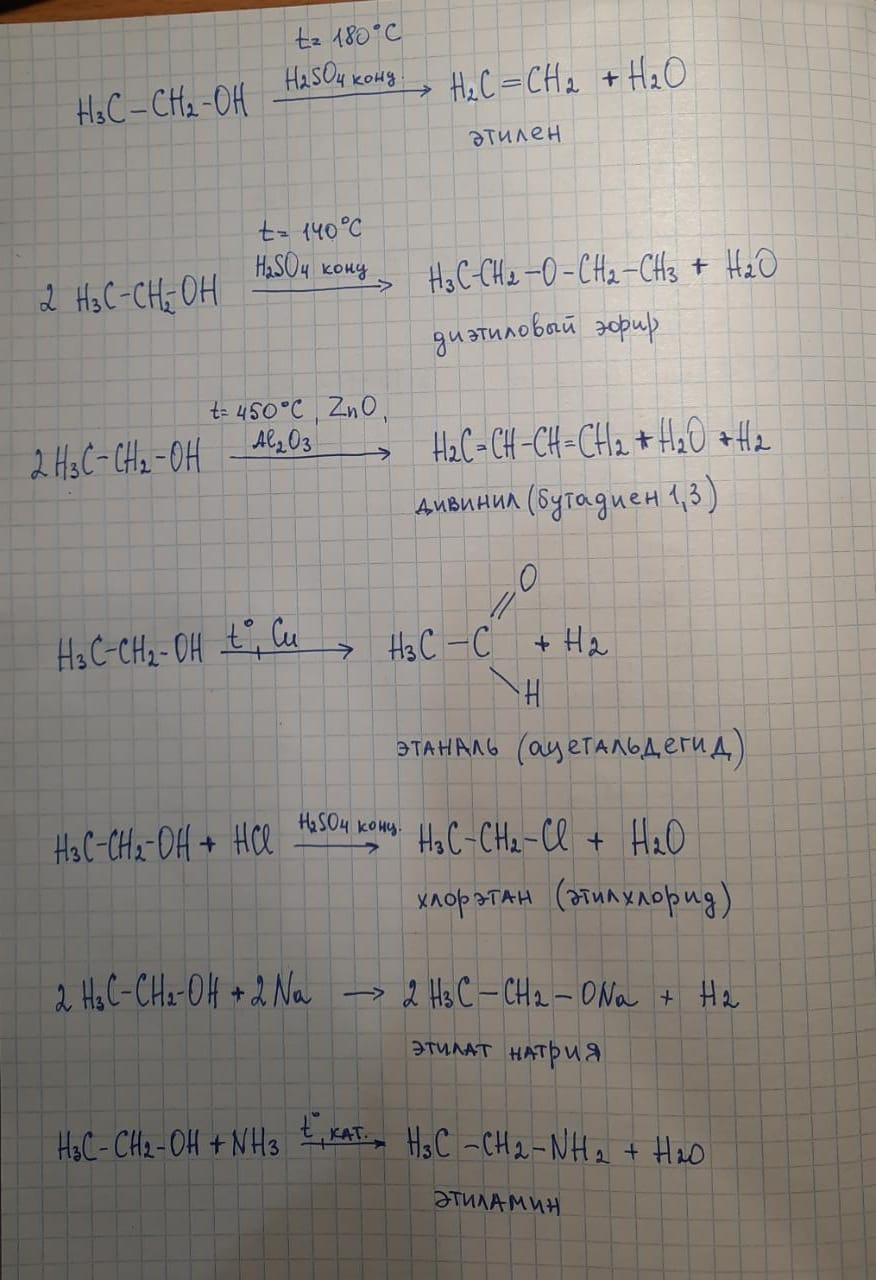 t= 180°C
H₃C–CH₂-OH H₂SO₄ конц. → H₂C=CH₂ + H₂O
этилен
t= 140°C
2 H₃C-CH₂-OH H₂SO₄ конц → H₃C-CH₂-O-CH₂-CH₃ + H₂O
диэтиловый эфир
t=450°C, ZnO,
2H₃C-CH₂-OH Al₂O₃ → H₂C=CH-CH=CH₂ + H₂O + H₂
дивинил (бутадиен 1,3)
O
H₃C-CH₂-OH t°, Cu → H₃C-C + H₂
H
этаналь (ацетальдегид)
H₃C-CH₂-OH + HCl H₂SO₄ конц. → H₃C-CH₂-Cl + H₂O
хлорэтан (этилхлорид)
2 H₃C-CH₂-OH + 2Na → 2 H₃C-CH₂-ONa + H₂
этилат натрия
H₃C-CH₂-OH + NH₃ t°, кат. → H₃C-CH₂-NH₂ + H₂O
этиламин